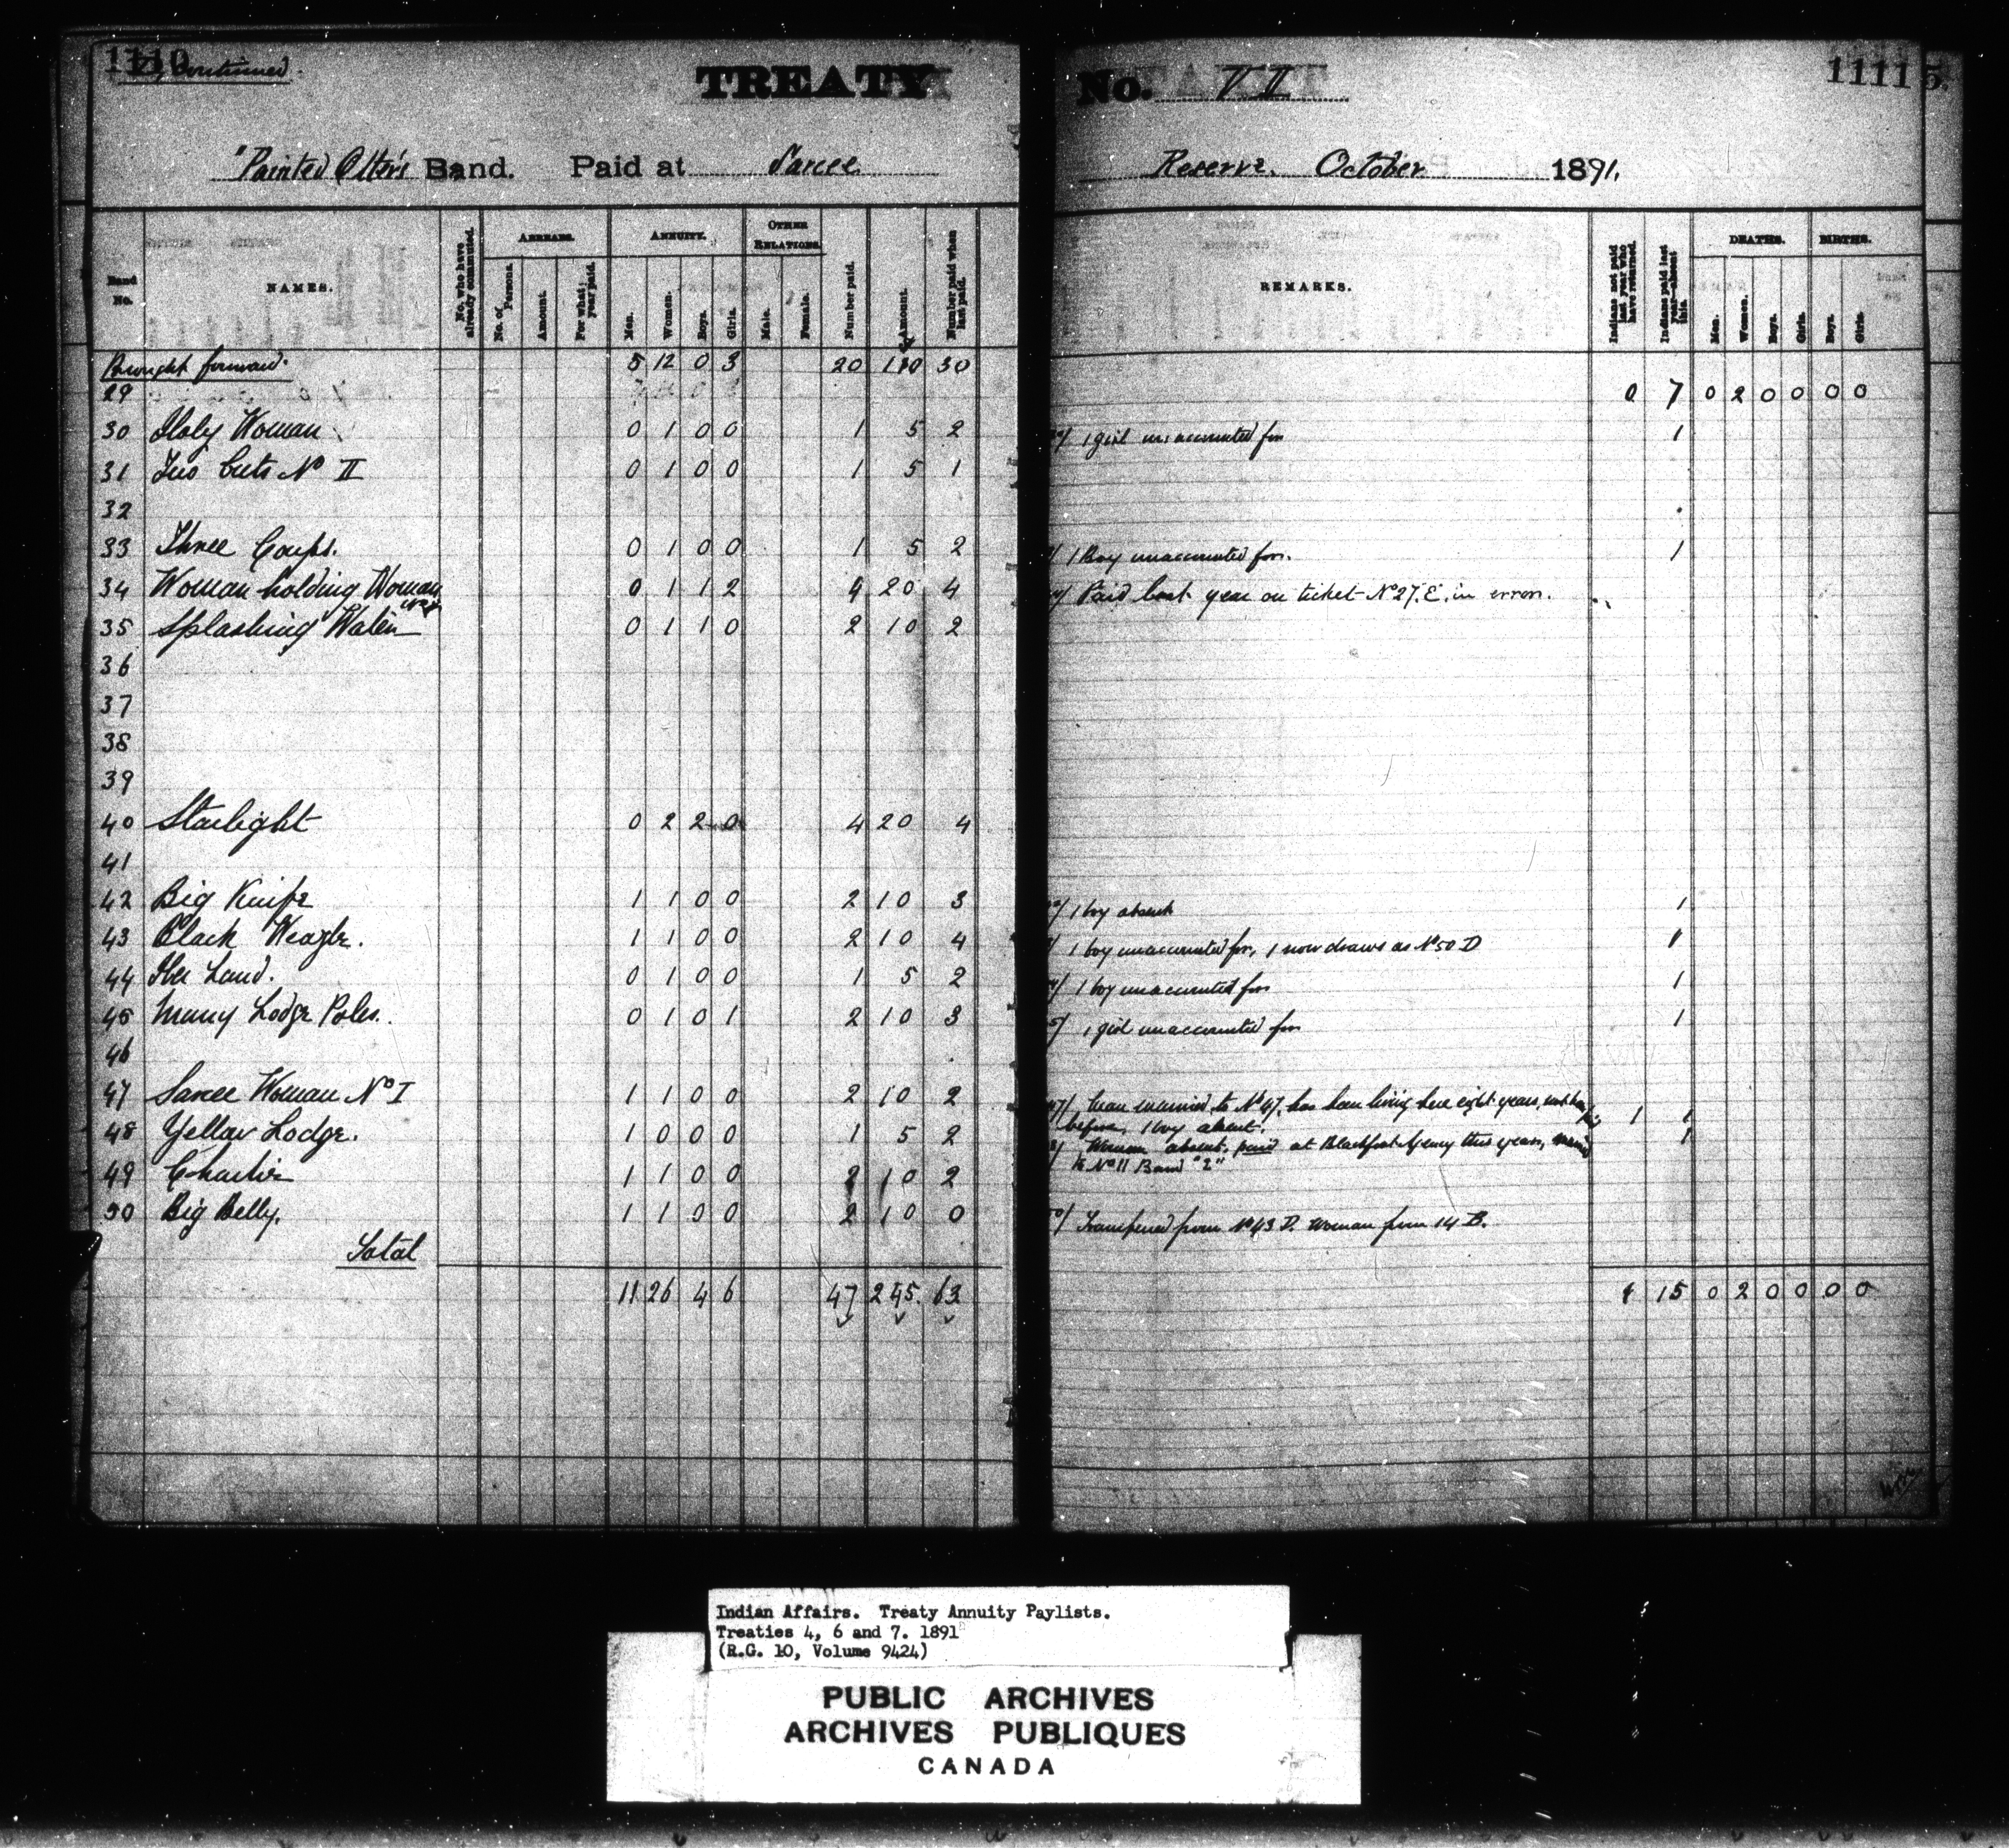 1110
"D" continued.
TREATY No. VII
1111 5.
"Painted Otter's Band. Paid at Sarcee Reserve. October 1891.
Band No.
NAMES.
No. who have already commuted.
ARREARS.
No. of Persons.
Amount.
For what year paid.
ANNUITY.
Men.
Women.
Boys.
Girls.
OTHER RELATIONS.
Male.
Female.
Number paid.
Amount.
Number paid when last paid.
REMARKS.
Indians not paid last year who have returned.
Indians paid last year—absent this.
DEATHS.
Men.
Women.
Boys.
Girls.
BIRTHS.
Boys.
Girls.
Brought forward. 5 12 0 3 20 110 30
29 0 7 0 2 0 0 0 0
30 Holy Woman 0 1 0 0 1 5 2 1 girl unaccounted for 1
31 Two Cuts No II 0 1 0 0 1 5 1
32
33 Three Coups. 0 1 0 0 1 5 2 1 Boy unaccounted for. 1
34 Woman holding Woman 0 1 1 2 4 20 4 Paid last year on ticket No 27. E. in error.
35 Splashing Water 0 1 1 0 2 10 2
36
37
38
39
40 Starlight 0 2 2 0 4 20 4
41
42 Big Knife 1 1 0 0 2 10 3 1 boy absent 1
43 Black Weazle. 1 1 0 0 2 10 4 1 boy unaccounted for, 1 now draws as No 50 D 1
44 Her Land. 0 1 0 0 1 5 2 1 boy unaccounted for 1
45 Many Lodge Poles. 0 1 0 1 2 10 3 1 girl unaccounted for 1
46
47 Sarcee Woman No I 1 1 0 0 2 10 2 47/ Man married to No 47, has been living here eight years, not 1 1
before, 1 boy absent.
48 Yellow Lodge. 1 0 0 0 1 5 2 Woman absent, paid at Blackfoot Agency this year, married 1
to No 11 Band "2"
49 Charlie 1 1 0 0 2 10 2
50 Big Belly. 1 1 0 0 2 10 0 Transferred from No 43 D. Woman from 14 B.
Total
11 26 4 6 47 245. 63 1 15 0 2 0 0 0 0
Indian Affairs. Treaty Annuity Paylists.
Treaties 4, 6 and 7. 1891
(R.G. 10, Volume 9424)
PUBLIC ARCHIVES
ARCHIVES PUBLIQUES
CANADA